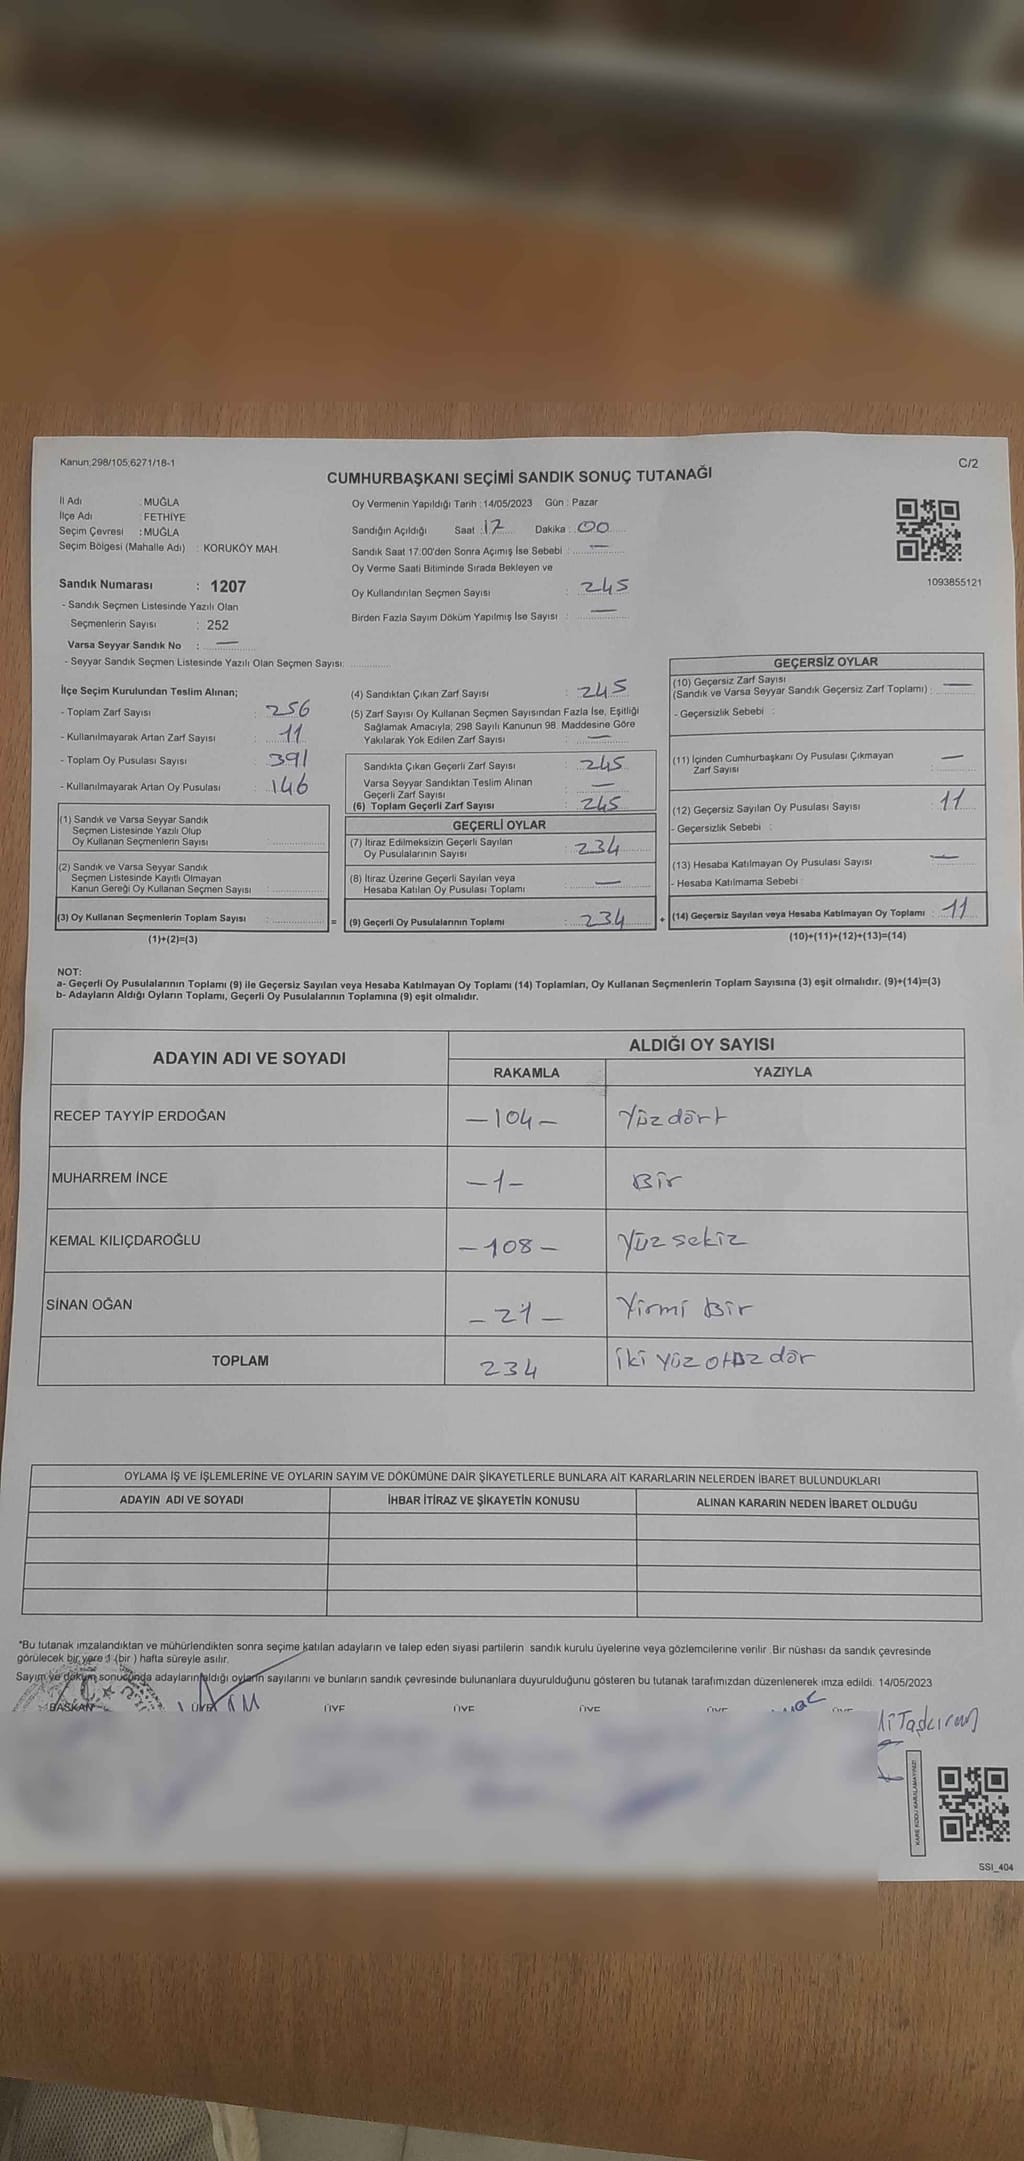 Kanun;298/105,6271/18-1
C/2
CUMHURBAŞKANI SEÇİMİ SANDIK SONUÇ TUTANAĞI
İl Adı : MUĞLA
İlçe Adı : FETHİYE
Seçim Çevresi : MUĞLA
Seçim Bölgesi (Mahalle Adı) : KORUKÖY MAH.
Sandık Numarası : 1207
- Sandık Seçmen Listesinde Yazılı Olan
Seçmenlerin Sayısı : 252
Varsa Seyyar Sandık No : —
- Seyyar Sandık Seçmen Listesinde Yazılı Olan Seçmen Sayısı:
Oy Vermenin Yapıldığı Tarih : 14/05/2023 Gün : Pazar
Sandığın Açıldığı Saat : 17 Dakika : 00
Sandık Saat 17:00'den Sonra Açımış İse Sebebi : —
Oy Verme Saati Bitiminde Sırada Bekleyen ve
Oy Kullandırılan Seçmen Sayısı : 245
Birden Fazla Sayım Döküm Yapılmış İse Sayısı : —
1093855121
İlçe Seçim Kurulundan Teslim Alınan;
- Toplam Zarf Sayısı : 256
- Kullanılmayarak Artan Zarf Sayısı : 11
- Toplam Oy Pusulası Sayısı : 391
- Kullanılmayarak Artan Oy Pusulası : 146
(1) Sandık ve Varsa Seyyar Sandık
Seçmen Listesinde Yazılı Olup
Oy Kullanan Seçmenlerin Sayısı :
(2) Sandık ve Varsa Seyyar Sandık
Seçmen Listesinde Kayıtlı Olmayan
Kanun Gereği Oy Kullanan Seçmen Sayısı :
(3) Oy Kullanan Seçmenlerin Toplam Sayısı :
(1)+(2)=(3)
(4) Sandıktan Çıkan Zarf Sayısı : 245
(5) Zarf Sayısı Oy Kullanan Seçmen Sayısından Fazla İse, Eşitliği
Sağlamak Amacıyla; 298 Sayılı Kanunun 98. Maddesine Göre
Yakılarak Yok Edilen Zarf Sayısı : —
Sandıkta Çıkan Geçerli Zarf Sayısı : 245
Varsa Seyyar Sandıktan Teslim Alınan
Geçerli Zarf Sayısı : —
(6) Toplam Geçerli Zarf Sayısı : 245
GEÇERLİ OYLAR
(7) İtiraz Edilmeksizin Geçerli Sayılan
Oy Pusulalarının Sayısı : 234
(8) İtiraz Üzerine Geçerli Sayılan veya
Hesaba Katılan Oy Pusulası Toplamı : —
= (9) Geçerli Oy Pusulalarının Toplamı : 234
GEÇERSİZ OYLAR
(10) Geçersiz Zarf Sayısı
(Sandık ve Varsa Seyyar Sandık Geçersiz Zarf Toplamı) : —
- Geçersizlik Sebebi :
(11) İçinden Cumhurbaşkanı Oy Pusulası Çıkmayan
Zarf Sayısı : —
(12) Geçersiz Sayılan Oy Pusulası Sayısı : 11
- Geçersizlik Sebebi :
(13) Hesaba Katılmayan Oy Pusulası Sayısı : —
- Hesaba Katılmama Sebebi :
+ (14) Geçersiz Sayılan veya Hesaba Katılmayan Oy Toplamı : 11
(10)+(11)+(12)+(13)=(14)
NOT:
a- Geçerli Oy Pusulalarının Toplamı (9) ile Geçersiz Sayılan veya Hesaba Katılmayan Oy Toplamı (14) Toplamları, Oy Kullanan Seçmenlerin Toplam Sayısına (3) eşit olmalıdır. (9)+(14)=(3)
b- Adayların Aldığı Oyların Toplamı, Geçerli Oy Pusulalarının Toplamına (9) eşit olmalıdır.
ADAYIN ADI VE SOYADI
ALDIĞI OY SAYISI
RAKAMLA YAZIYLA
RECEP TAYYİP ERDOĞAN –104– Yüz dört
MUHARREM İNCE –1– Bir
KEMAL KILIÇDAROĞLU –108– Yüz sekiz
SİNAN OĞAN –21– Yirmi Bir
TOPLAM 234 iki yüz otuz dör
OYLAMA İŞ VE İŞLEMLERİNE VE OYLARIN SAYIM VE DÖKÜMÜNE DAİR ŞİKAYETLERLE BUNLARA AİT KARARLARIN NELERDEN İBARET BULUNDUKLARI
ADAYIN ADI VE SOYADI İHBAR İTİRAZ VE ŞİKAYETİN KONUSU ALINAN KARARIN NEDEN İBARET OLDUĞU
*Bu tutanak imzalandıktan ve mühürlendikten sonra seçime katılan adayların ve talep eden siyasi partilerin sandık kurulu üyelerine veya gözlemcilerine verilir .Bir nüshası da sandık çevresinde
görülecek bir yere 1 (bir ) hafta süreyle asılır.
Sayım ve döküm sonucunda adayların aldığı oyların sayılarını ve bunların sandık çevresinde bulunanlara duyurulduğunu gösteren bu tutanak tarafımızdan düzenlenerek imza edildi. 14/05/2023
BAŞKAN ÜYE ÜYE ÜYE ÜYE ÜYE ÜYE
Taşkıran
KARE KODU KARALAMAYINIZ!
SSI_404